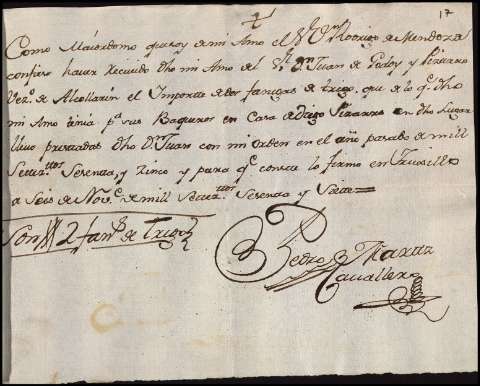 17
Como Maiordomo que soy de mi Amo el Sr. Dn. Rodrigo de Mendoza
confieso haver Recivido dho mi Amo del Sr. Dn. Juan de y Pizarro
Vezo. de Alcollarin el Importe de dos fanegas de trigo, que de lo qe. dho
mi Amo tenia pa. sus Baqueros en Casa de Diego Pizarro en dho Lugar
tuvo prestadas dho Dn. Juan con mi orden en el año pasado de mill
Setezttos. Sesenta, y Zinco y para qe. conste lo firmo en Truxillo
a Seis de Nove. de mill Setezttos. Sesenta y Siete=
Son 2 fans. de trigo
Pedro
Cavallero